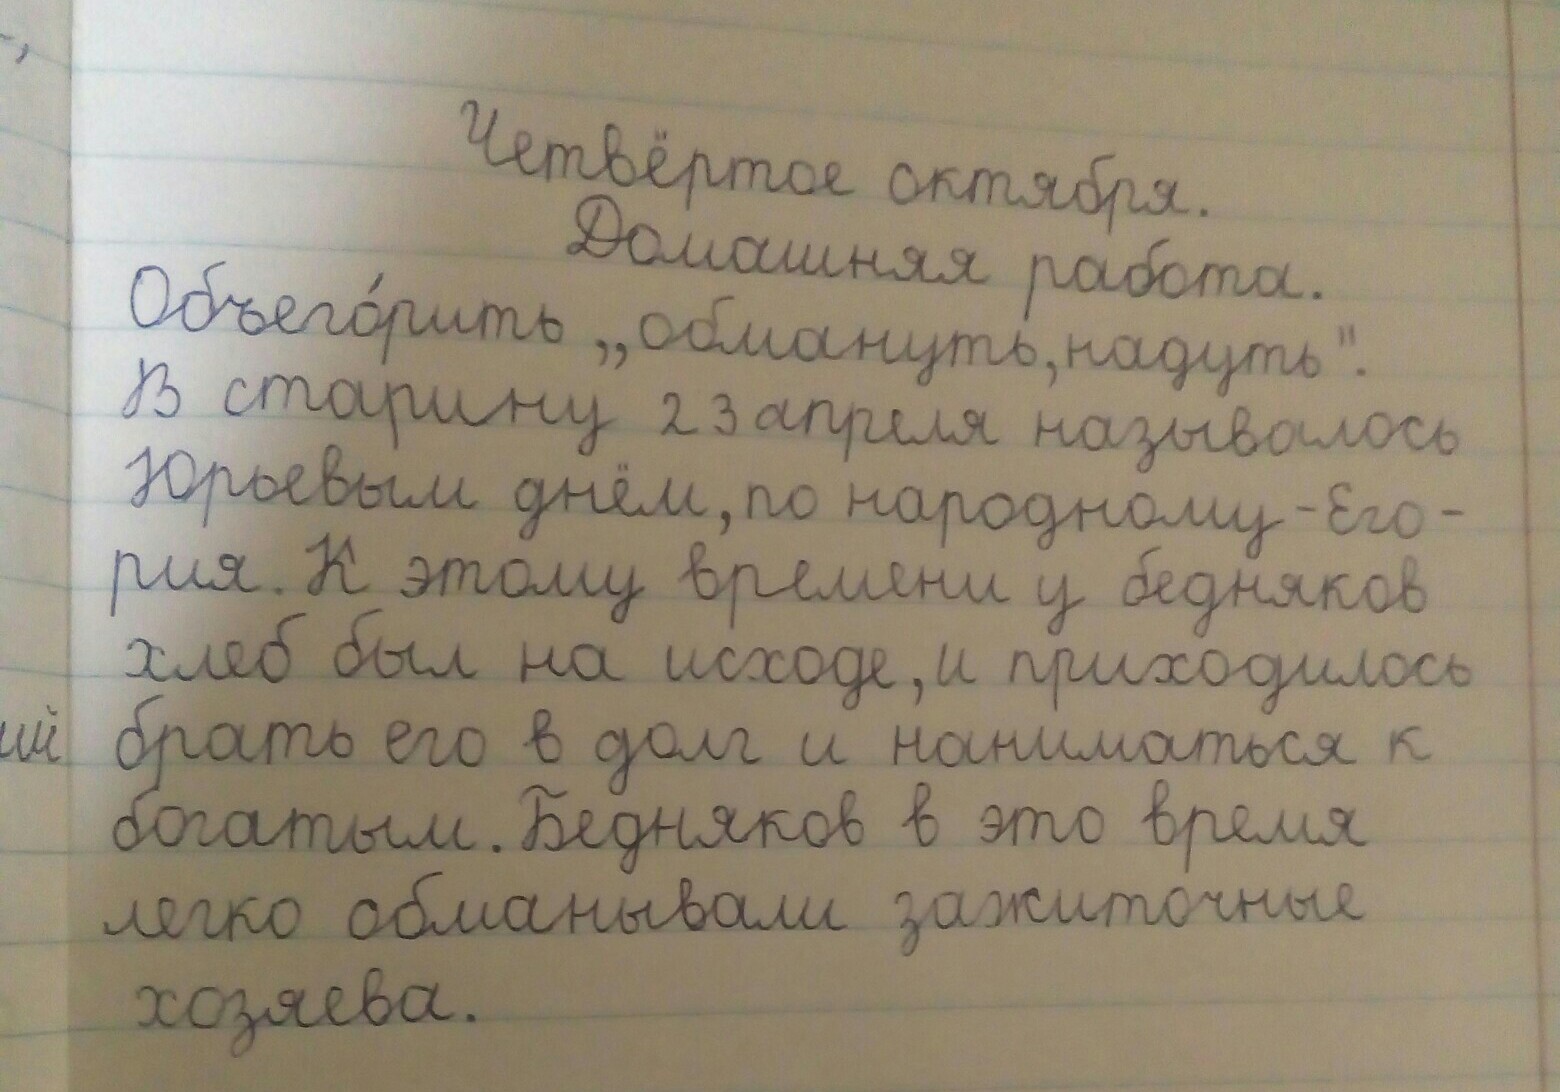 Четвёртое октября.
Домашняя работа.
Объего́рить „обмануть, надуть".
В старину 23 апреля называлось
Юрьевым днём, по народному - Его-
рия. К этому времени у бедняков
хлеб был на исходе, и приходилось
брать его в долг и наниматься к
богатым. Бедняков в это время
легко обманывали зажиточные
хозяева.